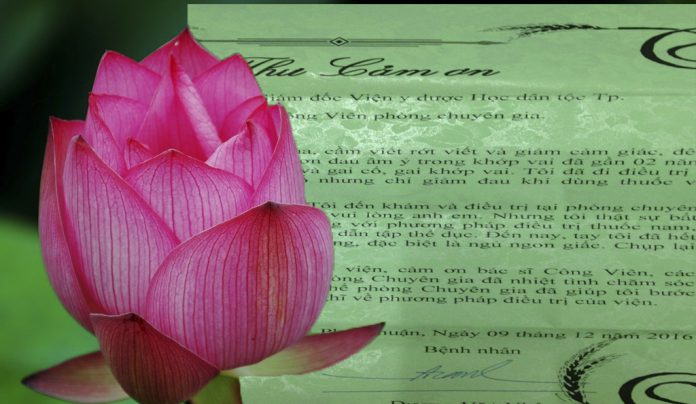 Thư Cảm ơn
Giám đốc Viện y dược Học dân tộc Tp.
Công Viên phòng chuyên gia.
cầm viết rớt viết và giảm cảm giác, đê
đau âm ỷ trong khớp vai đã gần 02 năm
và gai cổ, gai khớp vai. Tôi đã đi điều trị
nhưng chỉ giảm đau khi dùng thuốc
Tôi đến khám và điều trị tại phòng chuyên
vui lòng anh em. Nhưng tôi thật sự bấ
với phương pháp điều trị thuốc nam,
dẫn tập thể dục. Đến nay, tay tôi đã hết
đặc biệt là ngủ ngon giấc. Chụp lại
viện, cảm ơn bác sĩ Công Viên, các
Chuyên gia đã nhiệt tình chăm sóc
phòng Chuyên gia đã giúp tôi bước
về phương pháp điều trị của viện.
Ngày 09 tháng 12 năm 2016
Bệnh nhân